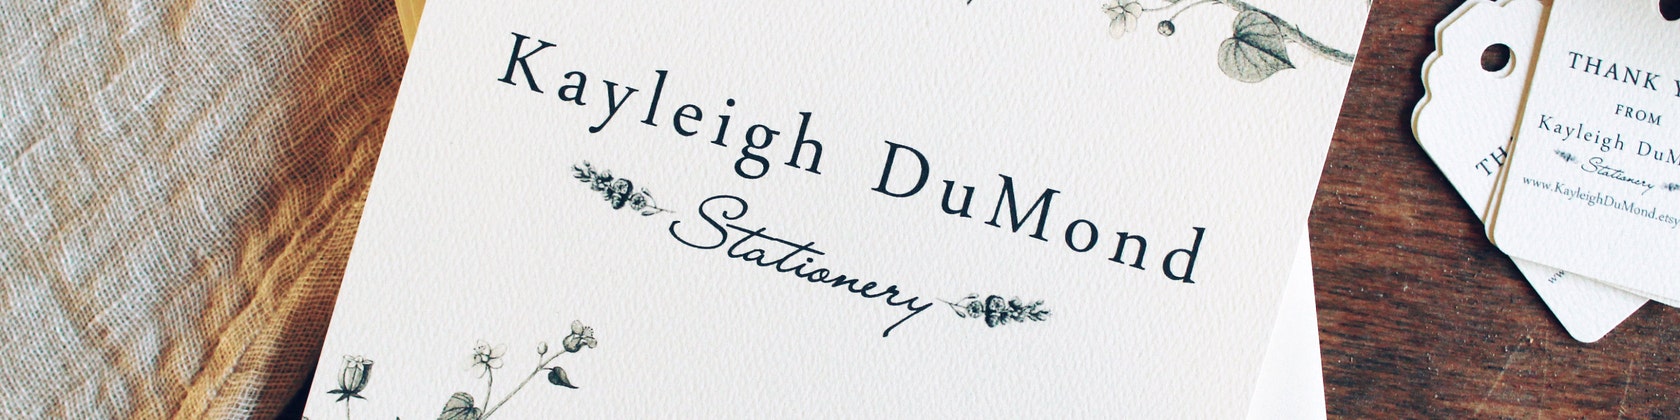 Kayleigh DuMond
Stationery
THANK
FROM
Kayleigh DuM
Stationery
www.KayleighDuMond.etsy
TH